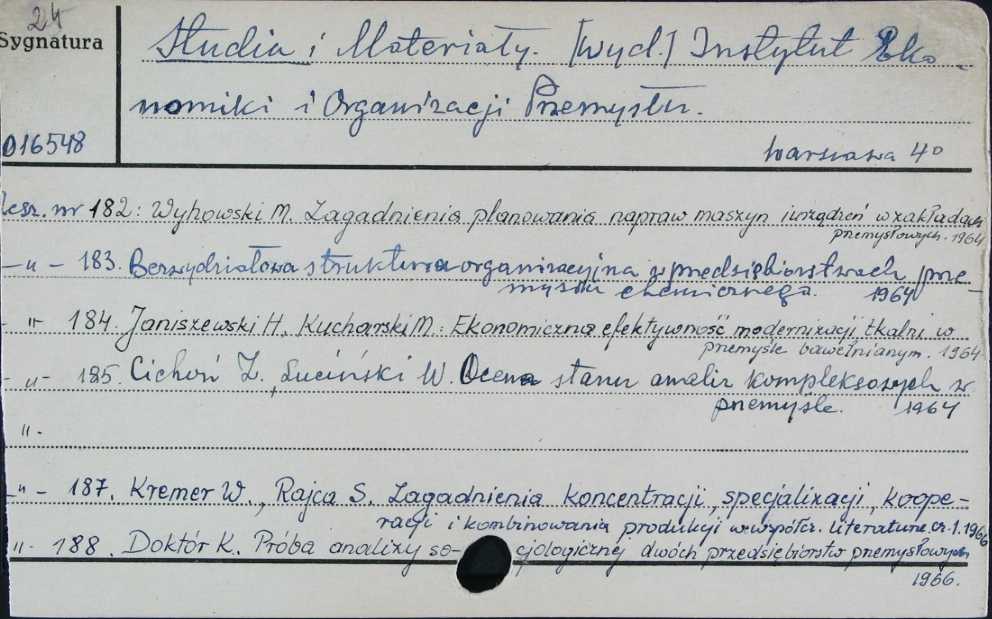 24
Sygnatura
Studia i Materiały. [wyd.] Instytut Eko-
nomiki i Organizacji Przemysłu.
016548
Warszawa 4°
zesz. nr 182: Wyhowski M. Zagadnienia planowania napraw maszyn i urządzeń w zakładach
przemysłowych. 1964
-"- 183. Bezwydziałowa struktura organizacyjna w przedsiębiorstwach prze-
mysłu chemicznego. 1964
-"- 184. Janiszewski H., Kucharski M.: Ekonomiczna efektywność modernizacji tkalni w
przemyśle bawełnianym. 1964
-"- 185. Cichoń Z., Łuciński W. Ocena stanu analiz kompleksowych w
przemyśle. 1964
"-
-"- 187. Kremer W., Rajca S. Zagadnienia koncentracji, specjalizacji, koope-
racji i kombinowania produkcji w współcz. literaturze cz. 1. 1966
"- 188. Doktór K. Próba analizy so-cjologicznej dwóch przedsiębiorstw przemysłowych
1966.